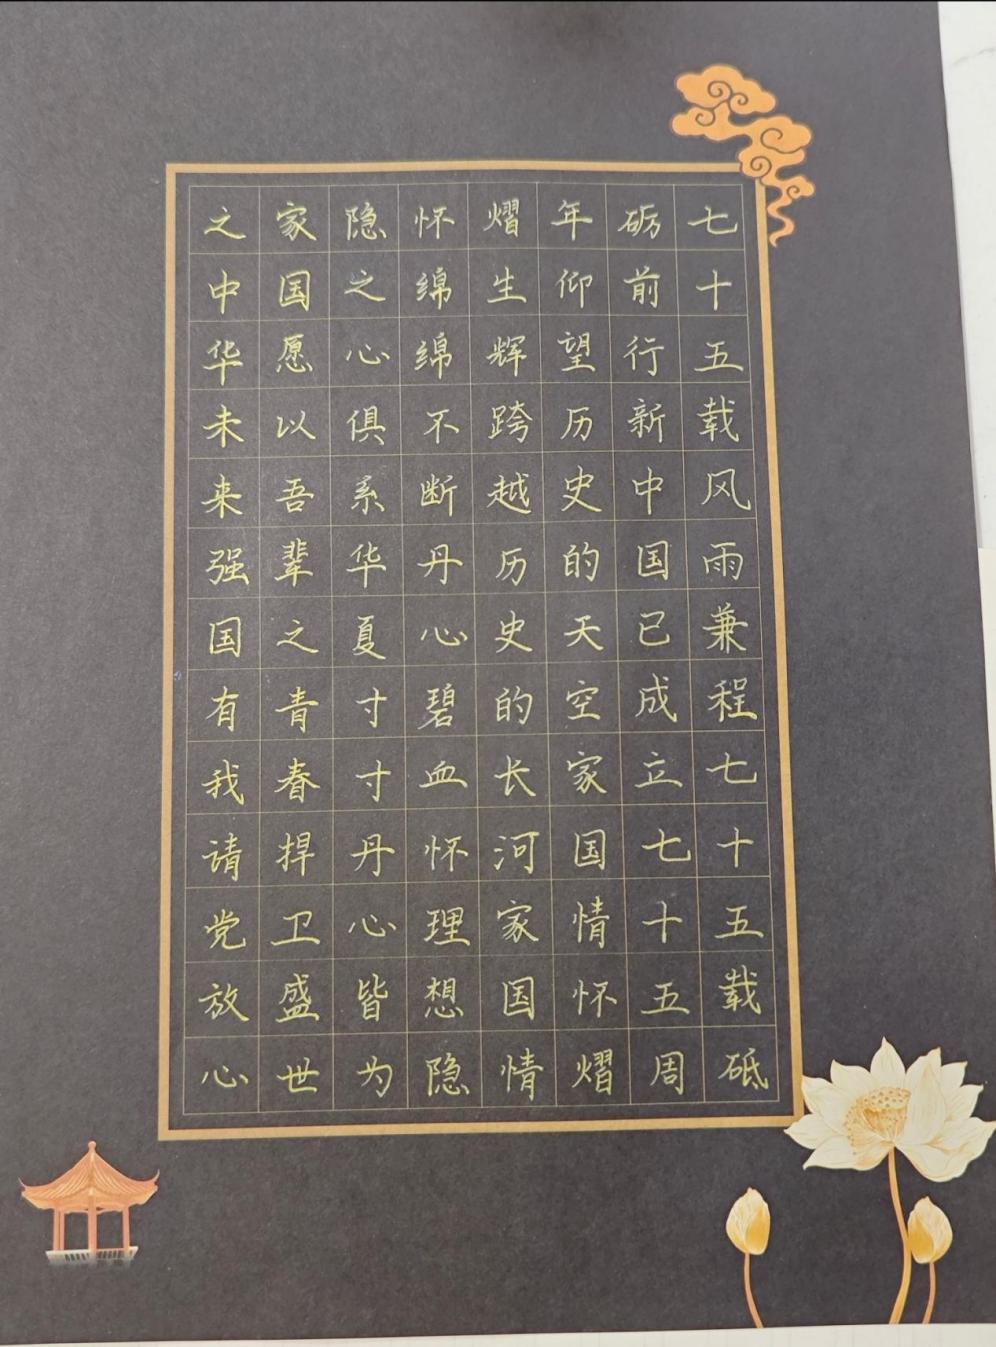 七十五载风雨兼程七十五载砥
砺前行新中国已成立七十五周
年仰望历史的天空家国情怀熠
熠生辉跨越历史的长河家国情
怀绵绵不断丹心碧血怀理想隐
隐之心俱系华夏寸寸丹心皆为
家国愿以吾辈之青春捍卫盛世
之中华未来强国有我请党放心